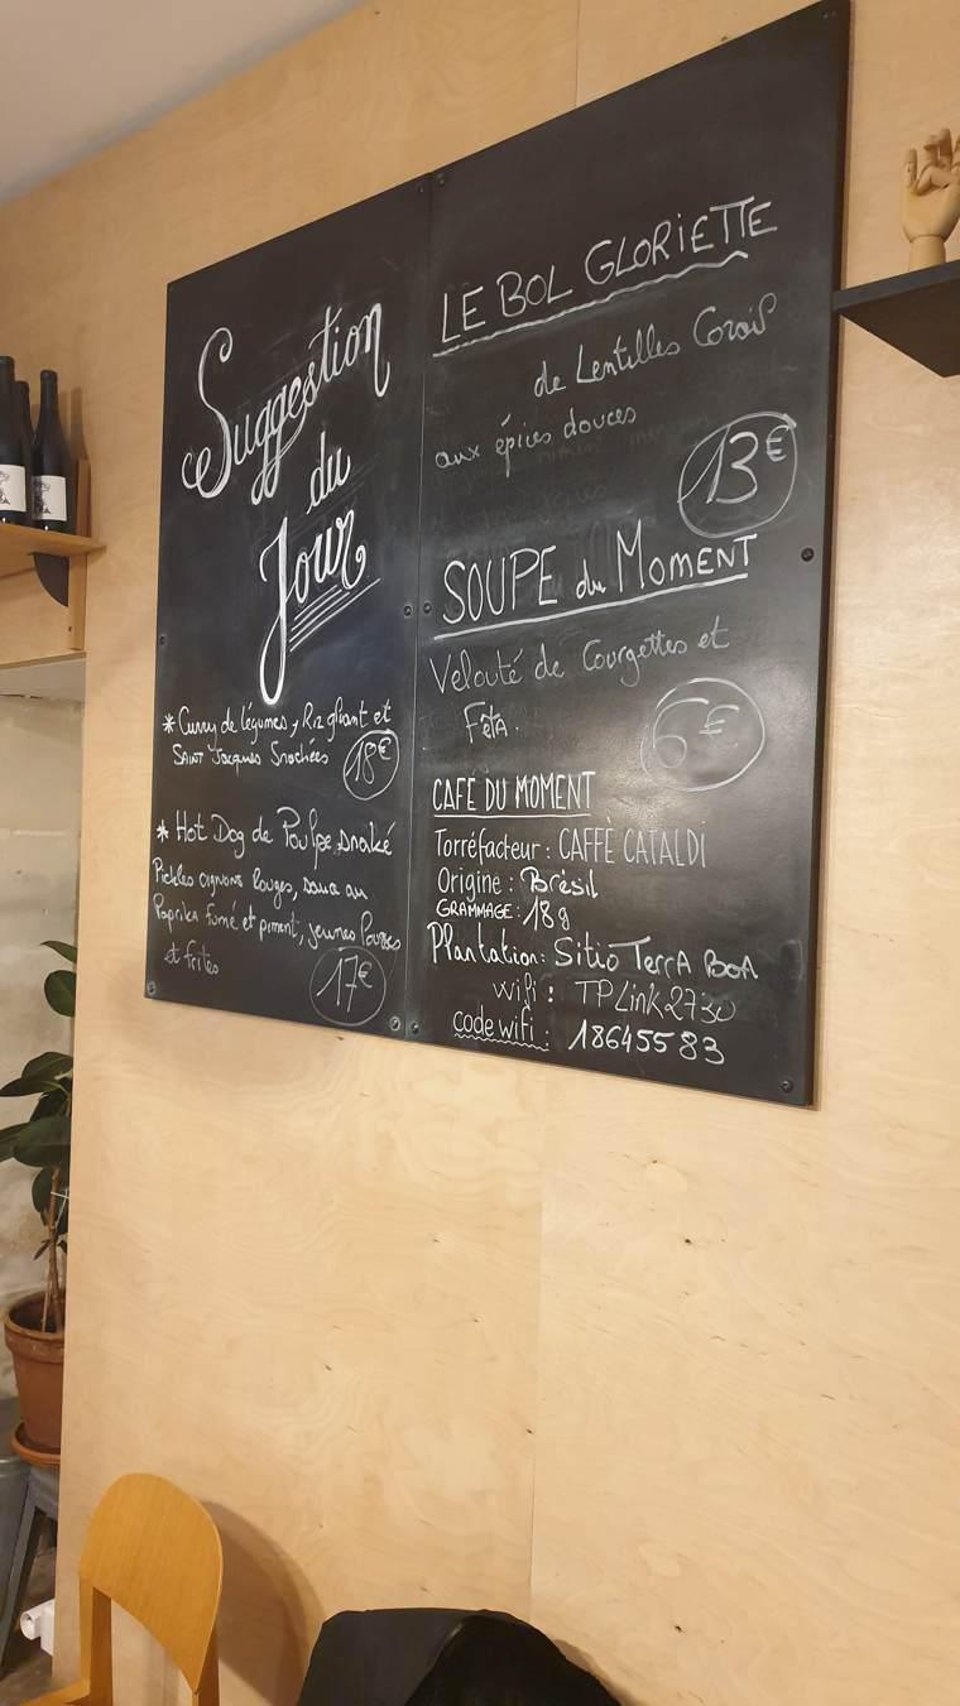 Suggestion
du
Jour
* Curry de légumes, Riz gluant et
SAINT Jacques Snackées
18€
* Hot Dog de Poulpe snaké
Pickles oignons Rouges, sauce au
Paprika fumé et piment, jeunes Pousses
et frites
17€
LE BOL GLORIETTE
de Lentilles Corail
aux épices douces
13€
SOUPE du MOMENT
Velouté de Courgettes et
Fêta.
6€
CAFE DU MOMENT
Torréfacteur : CAFFÈ CATALDI
Origine : Brésil
GRAMMAGE : 18g
Plantation : Sitio TerrA BoA
wifi : TPLink2730
code wifi : 18645583